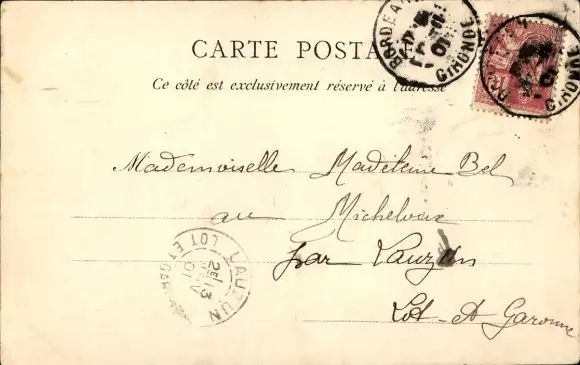 CARTE POSTALE
Ce côté est exclusivement réservé à l'adresse
BORDEAUX
GIRONDE
GIRONDE
Mademoiselle Madeleine Bel
au
par Lauzun
Lot-et-Garonne
LAUZUN
LOT ET GAR
2E
13
01